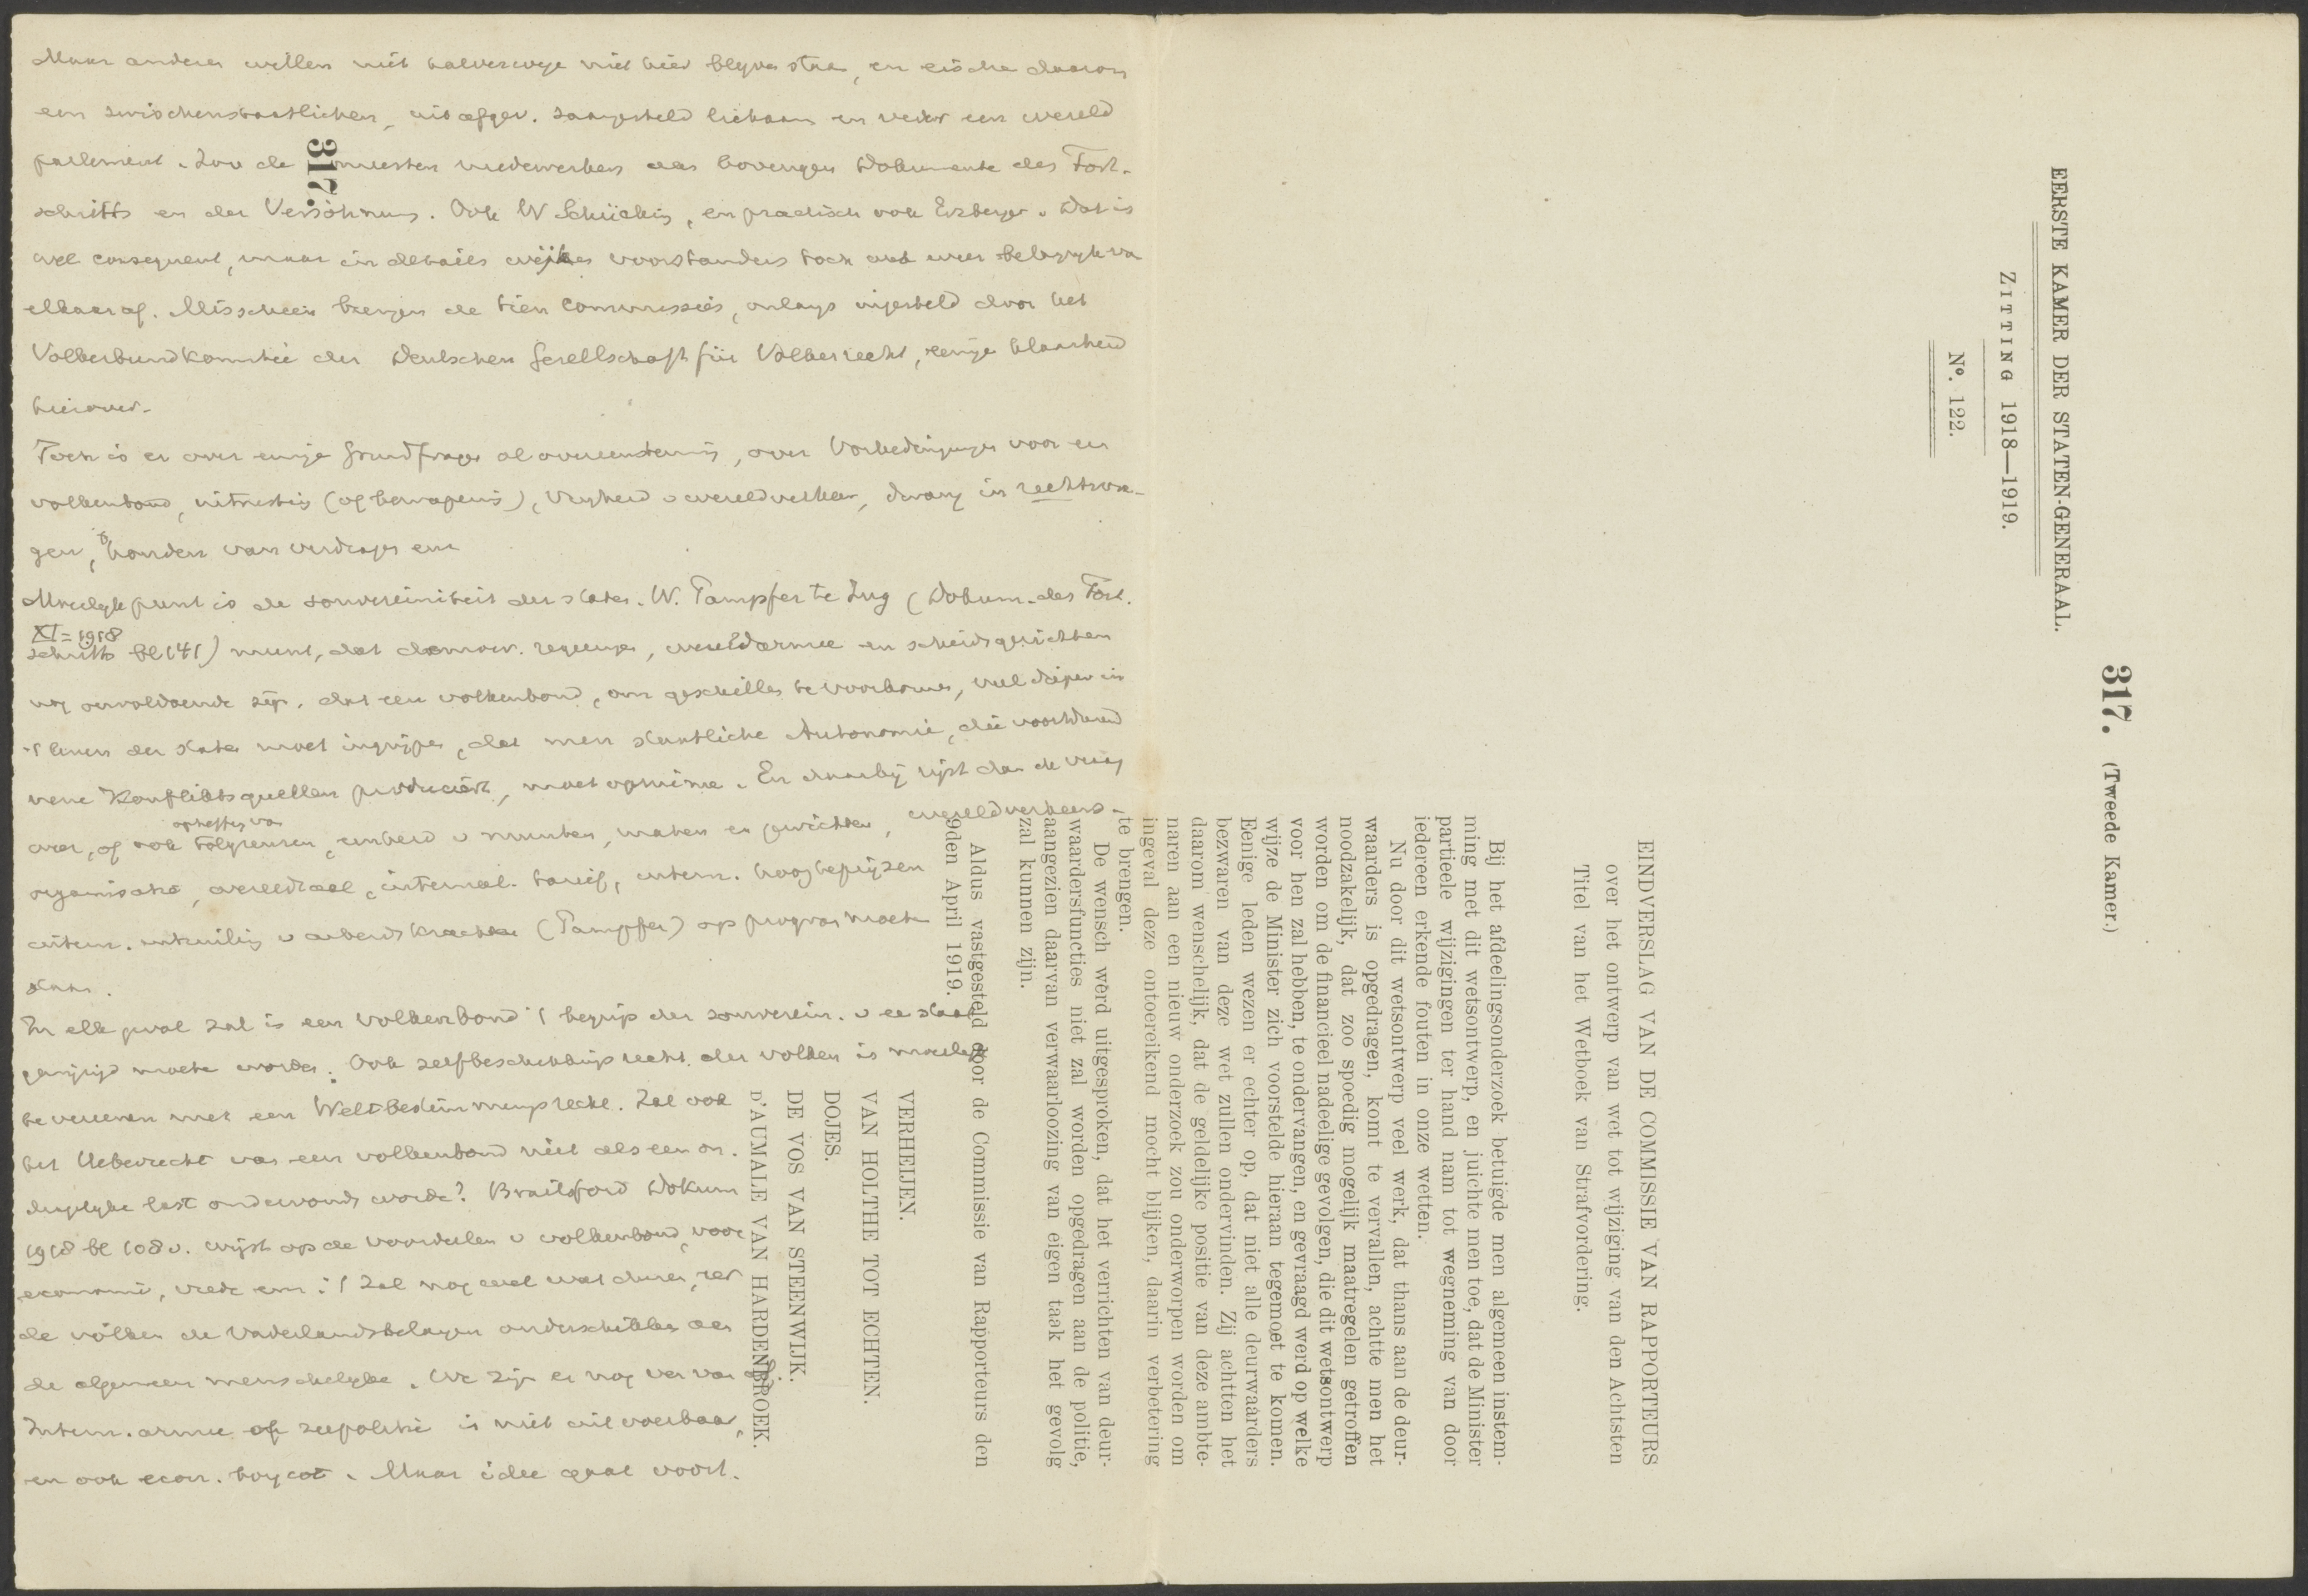 Maar anderen willen niet halverwege niet hier blyven staan, en eischen daarom
een zwischenstaatlichen, uit afgev. saamgesteld lichaam en verder een wereld
parlement. Zoo de meesten medewerkers aan bovengen Dokumente des Fort-
schritts en der Versöhnung. Ook W Schücking, en practisch ook Erzberger. Dat is
wel consequent, maar in details wijken voorstanders toch wel weer belangryk van
elkaar af. Misschien brengen de tien commissies, onlangs ingesteld door het
Völkerbundkomitee der Deutschen Gesellschaft für Völkerrecht, eenige klaarheid
hierover.
Toch is er over eenige Grundfragen al overeenstemming, over Vorbedingungen voor een
volkenbond, (of bewapening), vryheid v wereldverkeer, dwang in rechtsvra-
gen, houden van verdragen enz
Moeilyk punt is de souvereiniteit der staten. W. Pampfer te Zug (Dokum. des Fort.
XI = 1918
schritts bl 141) meent, dat democr. regeering, wereldarmee en scheidsgerichten
nog onvoldoende zijn. dat een volkenbond, om geschillen te voorkomen, veel dieper in
't leven der staten moet ingrijpen, dat men staatliche Autonomie, die voortdurend
neue Konfliktsquellen produciert, moet opruimen. En daarbij rijst dan de vraag
opheffing van
over, of ook tolgrenzen, eenheid v munten, maten en gewichten, wereldverkeers-
organisatie, wereldtaal, internat. tarief, intern. hoogstprijzen
intern. v arbeidskrachten (Pampfer) op program moeten
staan.
In elk geval zal in een volkenbond 't begrip der souverein. v ee staat
gewijzigd moeten worden. Ook zelfbeschikkingsrecht der volken is moeilyk
te vereenen met een Weltbestimmungsrecht. Zal ook
het Ueberrecht van een volkenbond niet als een on-
dragelyke last ondervonden worden? Brailsford Dokum
1918 bl 108 v. wijst op de voordeelen v volkenbond, voor
economie, vrede enz: 't zal nog wel wat duren, eer
de volken de vaderlandsbelangen onderschikken aan
de algemeen menschelyke. We zijn er nog ver van af.
Intern. armee of zeepolitie is niet uitvoerbaar,
en ook econ. boycot. Maar idee gaat voort.
317.
EERSTE KAMER DER STATEN-GENERAAL.
ZITTING 1918—1919.
No. 122.
317. (Tweede Kamer.)
EINDVERSLAG VAN DE COMMISSIE VAN RAPPORTEURS
over het ontwerp van wet tot wijziging van den Achtsten
Titel van het Wetboek van Strafvordering.
Bij het afdeelingsonderzoek betuigde men algemeen instem-
ming met dit wetsontwerp, en juichte men toe, dat de Minister
partieele wijzigingen ter hand nam tot wegneming van door
iedereen erkende fouten in onze wetten.
Nu door dit wetsontwerp veel werk, dat thans aan de deur-
waarders is opgedragen, komt te vervallen, achtte men het
noodzakelijk, dat zoo spoedig mogelijk maatregelen getroffen
worden om de financieel nadeelige gevolgen, die dit wetsontwerp
voor hen zal hebben, te ondervangen, en gevraagd werd op welke
wijze de Minister zich voorstelde hieraan tegemoet te komen.
Eenige leden wezen er echter op, dat niet alle deurwaarders
bezwaren van deze wet zullen ondervinden. Zij achtten het
daarom wenschelijk, dat de geldelijke positie van deze ambte-
naren aan een nieuw onderzoek zou onderworpen worden om
ingeval deze ontoereikend mocht blijken, daarin verbetering
te brengen.
De wensch werd uitgesproken, dat het verrichten van deur-
waardersfuncties niet zal worden opgedragen aan de politie,
aangezien daarvan verwaarloozing van eigen taak het gevolg
zal kunnen zijn.
Aldus vastgesteld door de Commissie van Rapporteurs den
9den April 1919.
VERHEIJEN.
VAN HOLTHE TOT ECHTEN.
DOJES.
DE VOS VAN STEENWIJK.
D'AUMALE VAN HARDENBROEK.